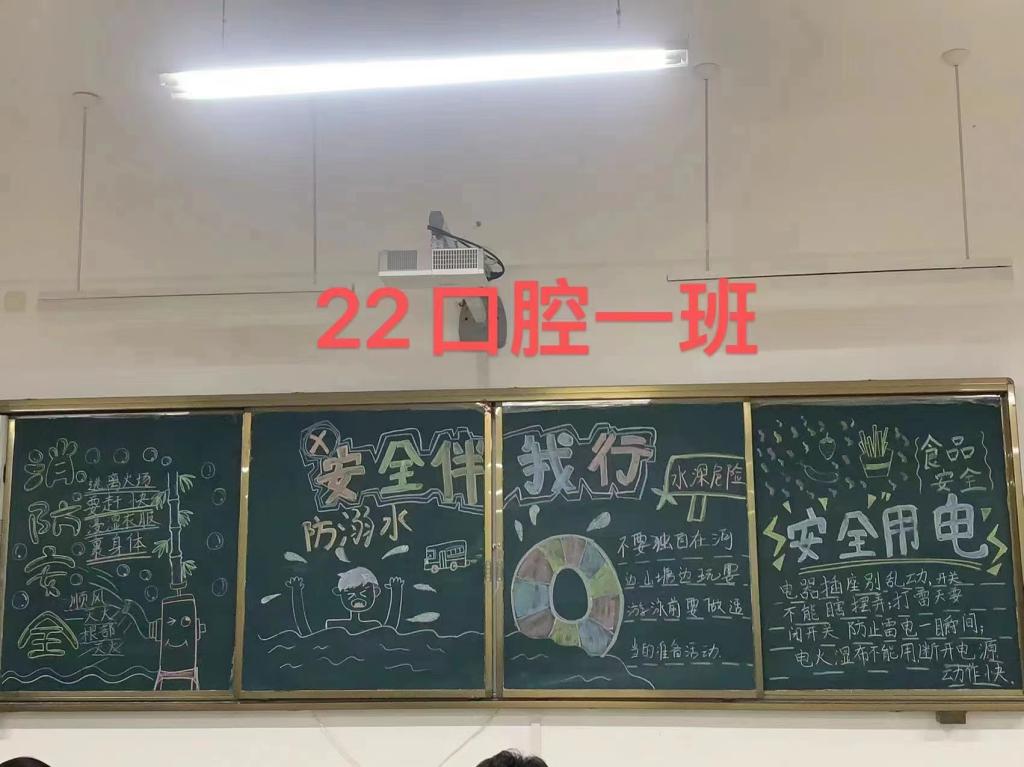 22口腔一班
消防安全
逃离火场
要赶快
要湿衣服
裹身体
顺风
灭火
根部
灭火
安全伴我行
防溺水
水深危险
不要独自在河
边山塘边玩耍
游泳前要做适
当的准备活动.
食品
安全
安全用电
电器插座别乱动,开关
不能瞎摆弄;打雷天要
闭开关 防止雷电一瞬间;
电火湿布不能用,断开电源
动作快.